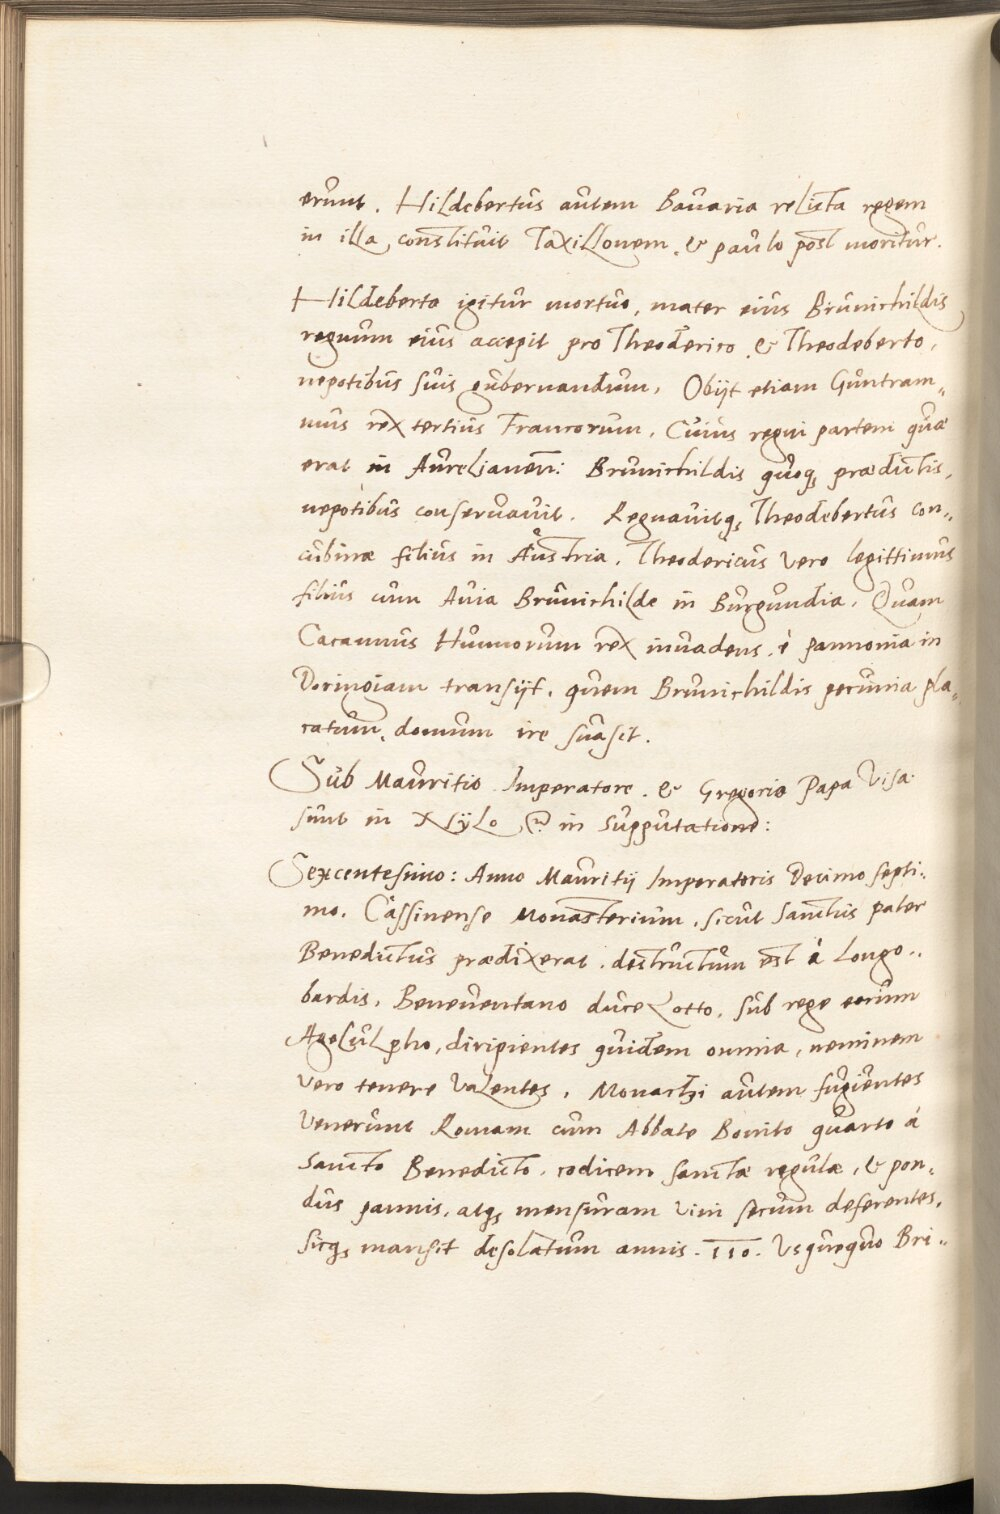 erunt. Hildebertus autem Bauaria relicta regem
in illa, constituit Taxillonem. & paulo post moritur.
Hildeberto igitur mortuo, mater eius Brunichildis
regnum eius accepit pro Theoderico & Theodeberto,
nepotibus suis gubernandum, Obijt etiam Guntram„
mus rex tertius Francorum, Cuius regni partem quæ
erat in Aurelianen: Brunichildis quoq; prædictis,
nepotibus conseruauit. Regnauitq; Theodebertus con„
cubinæ filius in Austria, Theodericus vero legittimus
filius cum Auia Brunichilde in Burgundia, Quam
Cacannus Hunnorum rex inuadens, è pannonia in
Doringiam transijt, quem Brunichildis pecunia pla„
catum, domum ire suasit.
Sub Mauritio Imperatore. & Gregorio Papa Visa
sunt in in supputatione:
Sexcentesimo: Anno Mauritij Imperatoris Decimo septi„
mo. Cassinense Monasterium, sicut sanctus pater
Benedictus prædixerat, destructum est à Longo„
bardis, Beneuentano duce Zotto, sub rege eorum
Agesulpho, diripientes quidem omnia, neminem
vero tenere valentes, Monachi autem fugientes
venerunt Romam cum Abbate Bonito quarto à
sancto Benedicto, codicem sanctæ regulæ, & pon„
dus pannis, atq; mensuram vini secum deferentes,
sicq; mansit desolatum annis. 110. Vsquequo Bri„